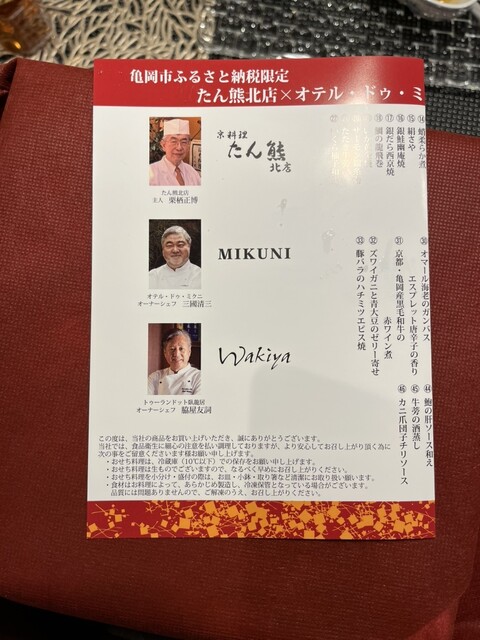 亀岡市ふるさと納税限定
たん熊北店×オテル・ドゥ・ミ
京料理
たん熊
北店
たん熊北店
主人 栗栖正博
MIKUNI
オテル・ドゥ・ミクニ
オーナーシェフ 三國清三
Wakiya
トゥーランドット臥龍居
オーナーシェフ 脇屋友詞
⑭ 蛸柔らか煮
⑮ 絹さや
⑯ 銀鮭幽庵焼
⑰ 銀だら西京焼
㉚ オマール海老のガンバス
エスプレット唐辛子の香り
㉛ 京都・亀岡産黒毛和牛の
赤ワイン煮
㉜ ズワイガニと青大豆のゼリー寄せ
㉝ 豚バラのハチミツエピス焼
㊹ 鮑の肝ソース和え
㊺ 牛蒡の酒蒸し
㊻ カニ爪団子チリソース
この度は、当社の商品をお買い上げいただき、誠にありがとうございます。
当社では、食品衛生に細心の注意を払い調理しておりますが、より安心してお召し上がり頂く為に
次の事をご留意くださいます様お願い申し上げます。
・おせち料理は、冷蔵庫（10℃以下）での保存をお願い申し上げます。
・おせち料理は生ものでございますので、なるべく早めにお召し上がりください。
・おせち料理を小分け・盛付の際は、お皿・小鉢・取り箸など清潔にお取り扱い願います。
・食材はお料理によって、あらかじめ製造し、冷凍保管となっている場合がございます。
品質には問題ありませんので、ご解凍のうえ、お召し上がりください。